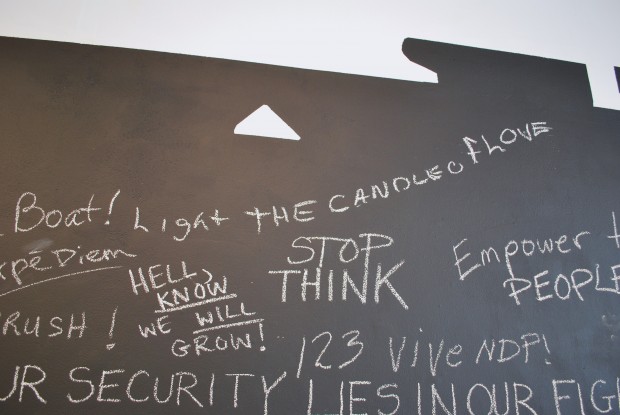 Boat! Light THE CANDLE OF LOVE
pe Diem
HELL,
KNOW
WE WILL
GROW!
STOP
THINK
Empower
PEOPLE
RUSH!
123 Vive NDP!
UR SECURITY LIES IN OUR FIG